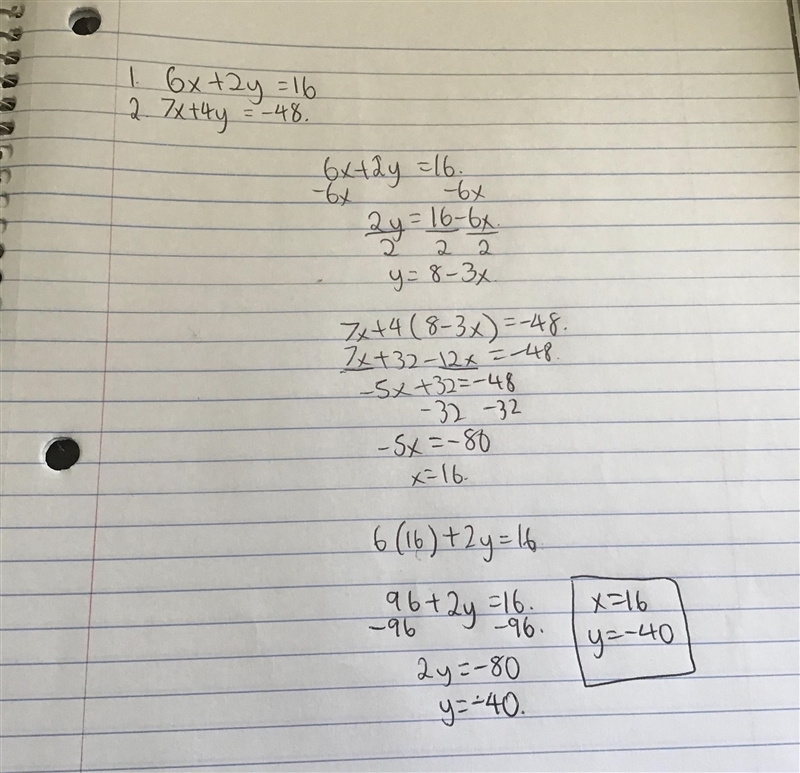 1. 6x+2y=16
2. 7x+4y=-48.
6x+2y=16.
-6x -6x
2y=16-6x.
2 2 2
y=8-3x.
7x+4(8-3x)=-48.
7x+32-12x=-48.
-5x+32=-48
-32 -32
-5x=-80
x=16.
6(16)+2y=16.
96+2y=16.
-96 -96.
2y=-80
y=-40.
x=16
y=-40